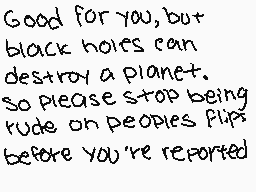 Good for you, but
black holes can
destroy a planet.
so please stop being
rude on peoples flips
before you're reported